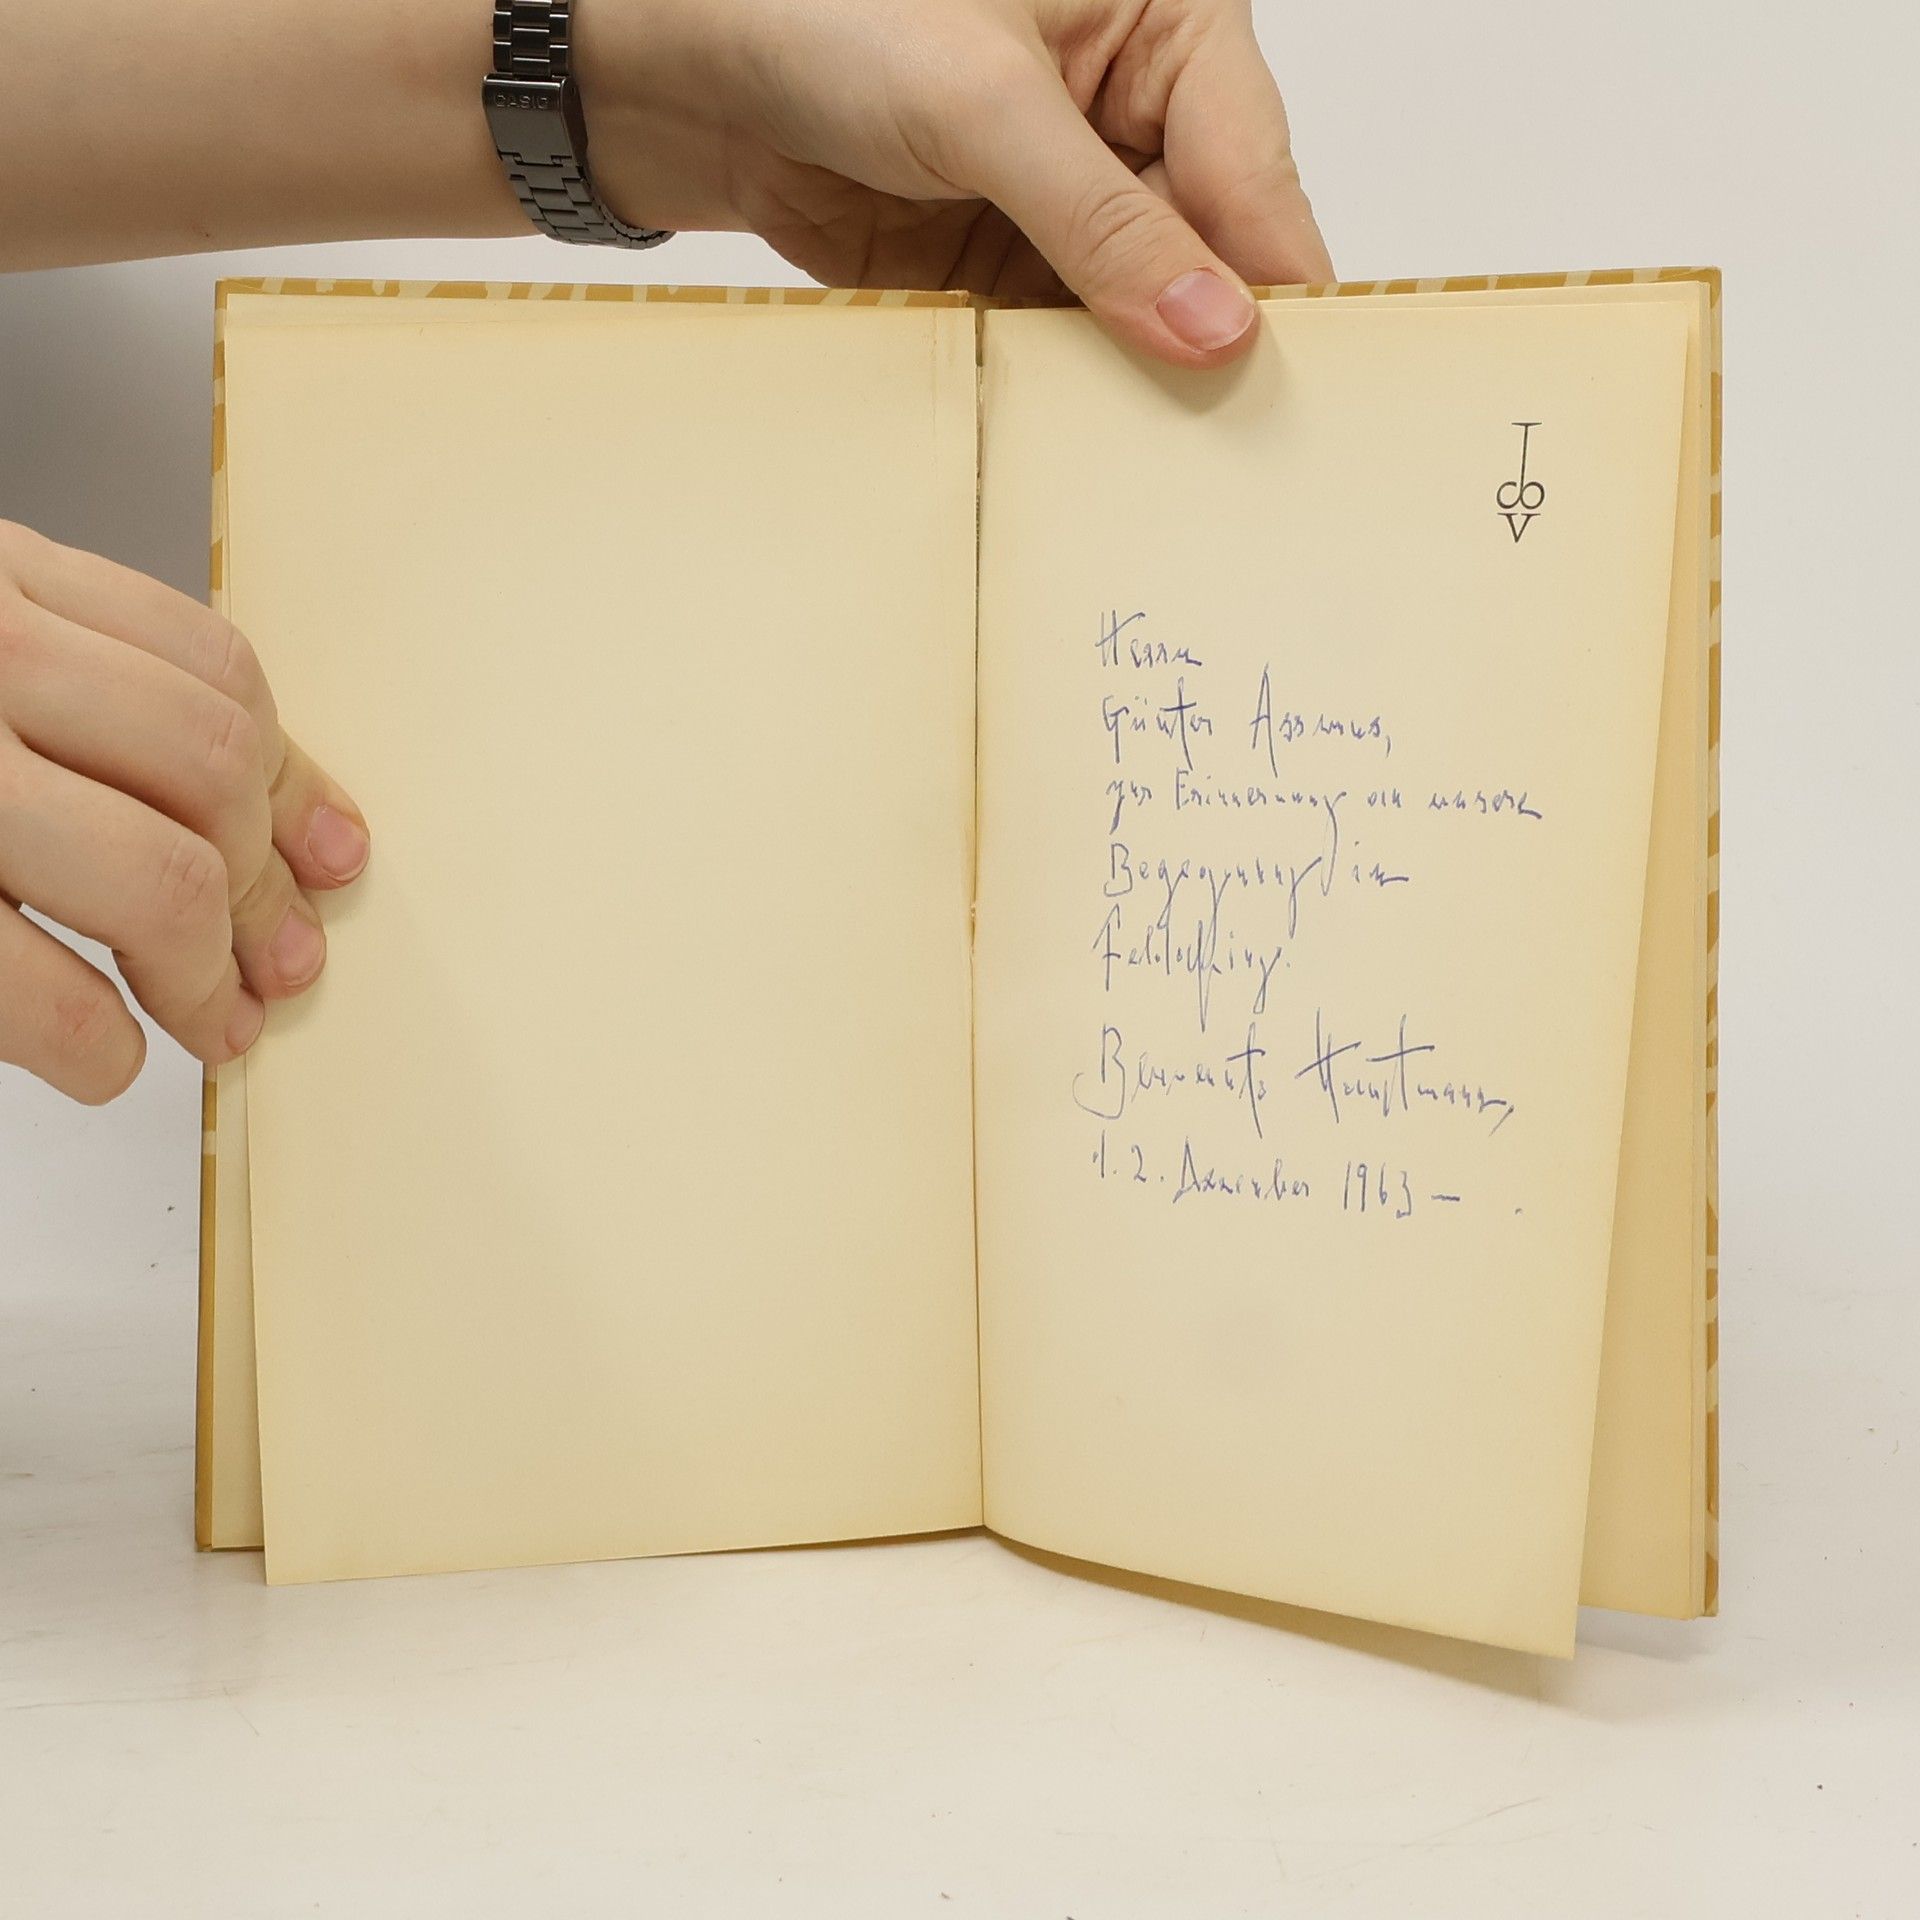 CASIO
T
do
V
Herrn
Günter Assmus,
zur Erinnerung an unsere
Begegnung in
Feldafing.
Benvenuto Hauptmann,
1. 2. Dezember 1963 –